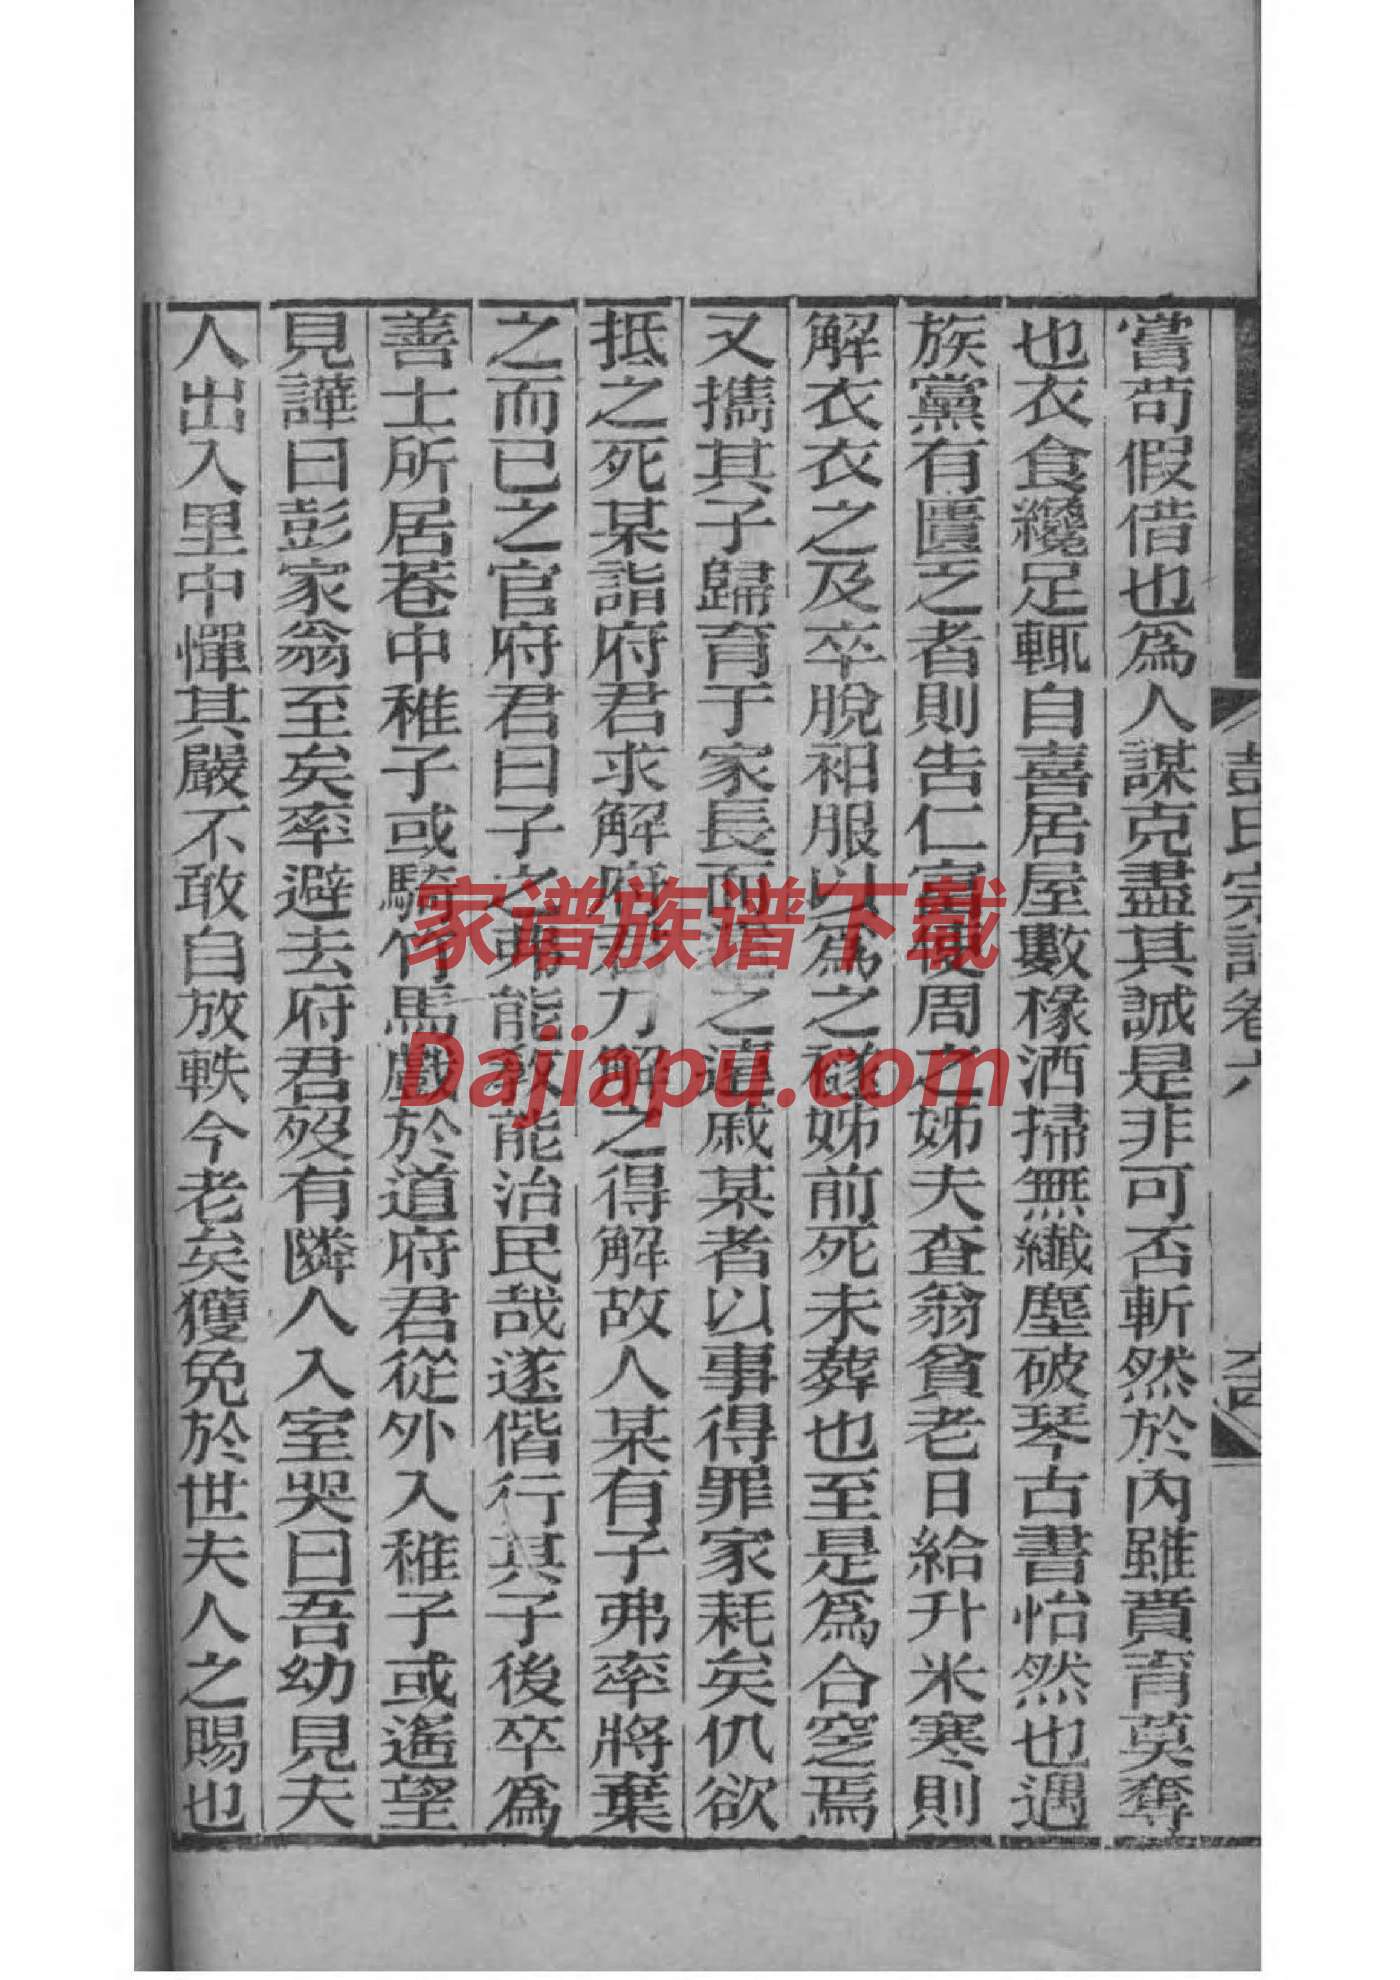 彭氏宗譜卷六
嘗苟假借也為人謀克盡其誠是非可否斬然於內雖賁育莫奪
也衣食纔足輒自喜居屋數椽洒掃無纖塵破琴古書怡然也遇
族黨有匱乏者則告仁富使周之姊夫查翁貧老日給升米寒則
解衣衣之及卒脫袒服以為之襚姊前死未葬也至是為合窆焉
又攜其子歸育于家長而遣之遣戚某者以事得罪家耗矣仇欲
抵之死某詣府君求解府君力解之得解故人某有子弗率將棄
之而已之官府君曰子之弗能教能治民哉遂偕行其子後卒為
善士所居巷中稚子或騎竹馬戲於道府君從外入稚子或遙望
見譁曰彭家翁至矣率避去府君歿有隣人入室哭曰吾幼見夫
人出入里中憚其嚴不敢自放軼今老矣獲免於世夫人之賜也
家谱族谱下载
Dajiapu.com